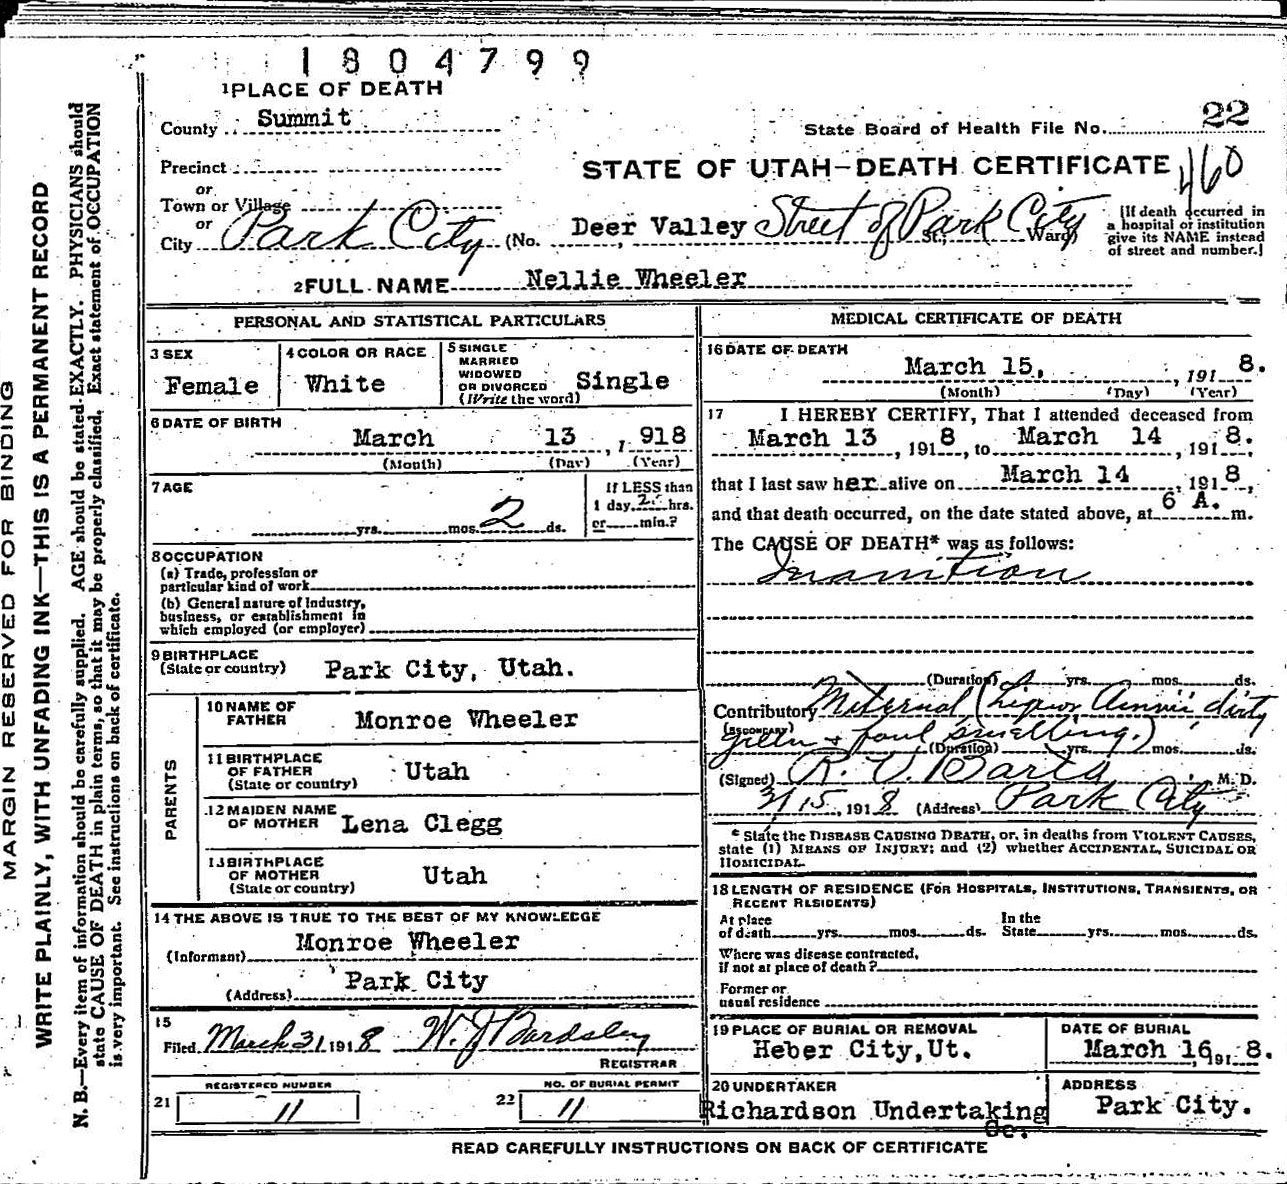 1804799
1 PLACE OF DEATH
County Summit
State Board of Health File No. 22
Precinct
STATE OF UTAH—DEATH CERTIFICATE 460
or
Town or Village
or
City Park City (No. Deer Valley Street of Park City St.; Ward)
[If death occurred in
a hospital or institution
give its NAME instead
of street and number.]
2 FULL NAME Nellie Wheeler
PERSONAL AND STATISTICAL PARTICULARS
3 SEX
Female
4 COLOR OR RACE
White
5 SINGLE
MARRIED
WIDOWED
OR DIVORCED
(Write the word)
Single
6 DATE OF BIRTH
March 13, 1918
(Month) (Day) (Year)
7 AGE
yrs. mos. 2 ds.
If LESS than
1 day, hrs.
or min.?
8 OCCUPATION
(a) Trade, profession or
particular kind of work
(b) General nature of Industry,
business, or establishment in
which employed (or employer)
9 BIRTHPLACE
(State or country) Park City, Utah.
PARENTS
10 NAME OF
FATHER Monroe Wheeler
11 BIRTHPLACE
OF FATHER
(State or country) Utah
12 MAIDEN NAME
OF MOTHER Lena Clegg
13 BIRTHPLACE
OF MOTHER
(State or country) Utah
14 THE ABOVE IS TRUE TO THE BEST OF MY KNOWLEDGE
(Informant) Monroe Wheeler
(Address) Park City
15
Filed March 31 1918 W. J. Bardsley
REGISTRAR
REGISTERED NUMBER
21 11
NO. OF BURIAL PERMIT
22 11
MEDICAL CERTIFICATE OF DEATH
16 DATE OF DEATH
March 15, , 1918.
(Month) (Day) (Year)
17 I HEREBY CERTIFY, That I attended deceased from
March 13, 1918, to March 14, 1918.
that I last saw her alive on March 14, 1918,
and that death occurred, on the date stated above, at 6 A. m.
The CAUSE OF DEATH* was as follows:
Inanition
(Duration) yrs. mos. ds.
Contributory Maternal (Liquor Amnii dirty
(SECONDARY) green & foul smelling.)
(Duration) yrs. mos. ds.
(Signed) R. V. Barta M. D.
3/15, 1918 (Address) Park City
* State the DISEASE CAUSING DEATH, or, in deaths from VIOLENT CAUSES,
state (1) MEANS OF INJURY; and (2) whether ACCIDENTAL, SUICIDAL OR
HOMICIDAL.
18 LENGTH OF RESIDENCE (FOR HOSPITALS, INSTITUTIONS, TRANSIENTS, OR
RECENT RESIDENTS)
At place
of death yrs. mos. ds.
In the
State yrs. mos. ds.
Where was disease contracted,
if not at place of death?
Former or
usual residence
19 PLACE OF BURIAL OR REMOVAL
Heber City, Ut.
DATE OF BURIAL
March 16, 1918.
20 UNDERTAKER
Richardson Undertaking
Co.
ADDRESS
Park City.
READ CAREFULLY INSTRUCTIONS ON BACK OF CERTIFICATE
MARGIN RESERVED FOR BINDING
WRITE PLAINLY, WITH UNFADING INK—THIS IS A PERMANENT RECORD
N. B.—Every item of information should be carefully supplied. AGE should be stated EXACTLY. PHYSICIANS should
state CAUSE OF DEATH in plain terms, so that it may be properly classified. Exact statement of OCCUPATION
is very important. See instructions on back of certificate.